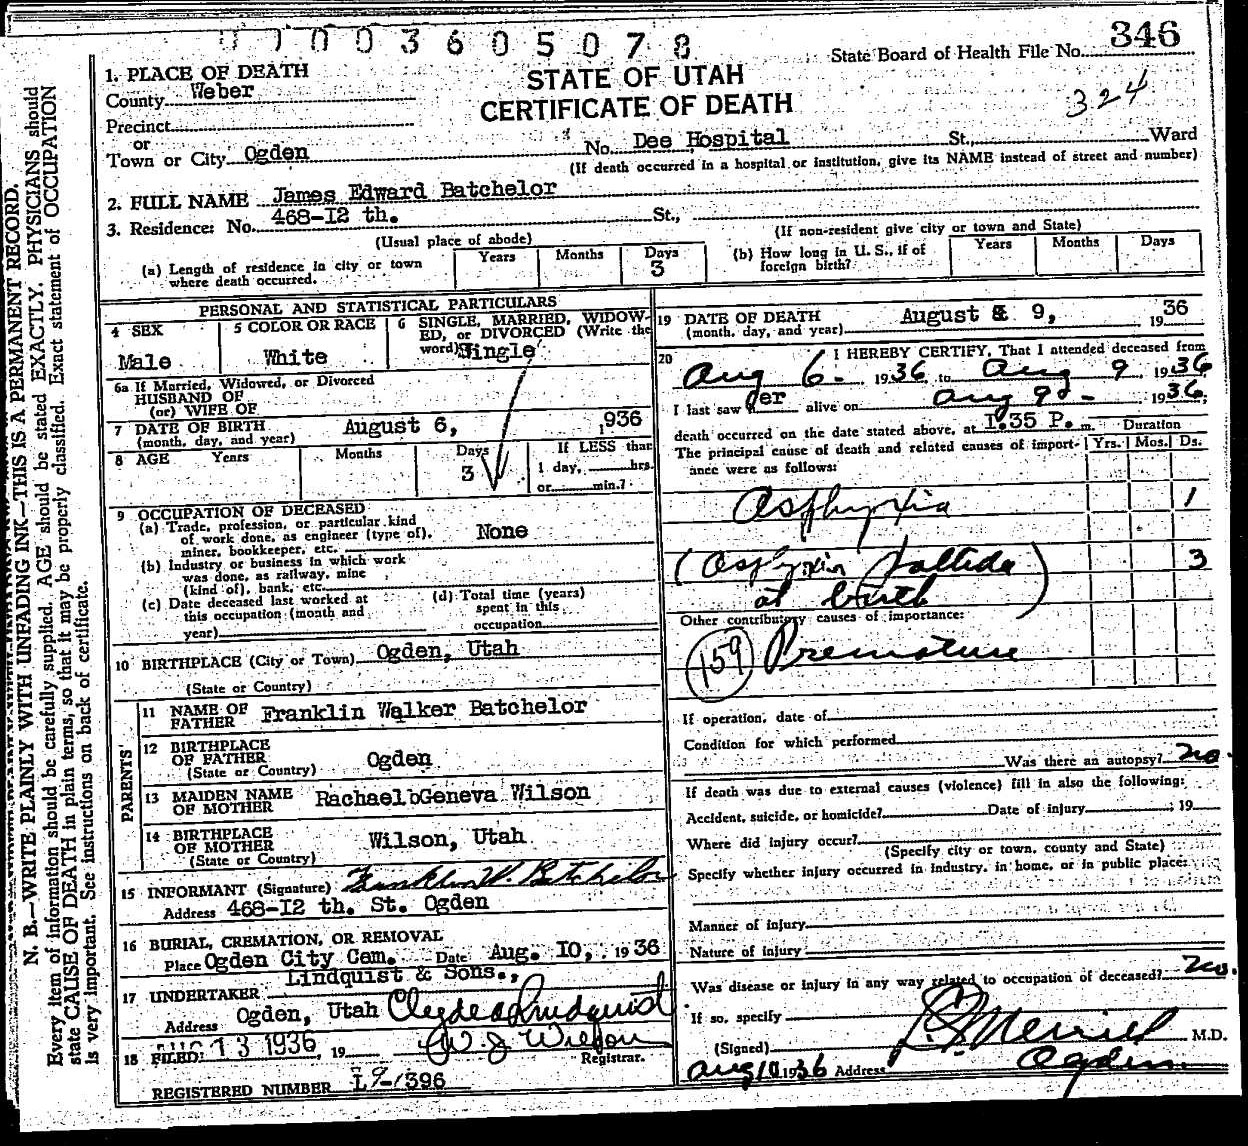 0 0 0 3 6 0 5 0 7 8
State Board of Health File No. 346
324
STATE OF UTAH
CERTIFICATE OF DEATH
1. PLACE OF DEATH
County Weber
Precinct
or
Town or City Ogden No. Dee Hospital St., Ward
(If death occurred in a hospital or institution, give its NAME instead of street and number)
2. FULL NAME James Edward Batchelor
3. Residence: No. 468-I2 th. St.,
(Usual place of abode) (If non-resident give city or town and State)
(a) Length of residence in city or town where death occurred. Years Months Days 3
(b) How long in U. S., if of foreign birth? Years Months Days
PERSONAL AND STATISTICAL PARTICULARS
4 SEX Male
5 COLOR OR RACE White
6 SINGLE, MARRIED, WIDOWED, or DIVORCED (Write the word) Single
6a If Married, Widowed, or Divorced
HUSBAND OF
(or) WIFE OF
7 DATE OF BIRTH August 6, 1936
(month, day, and year)
8 AGE Years Months Days 3 If LESS than
1 day, hrs.
or min.?
9 OCCUPATION OF DECEASED
(a) Trade, profession, or particular kind
of work done, as engineer (type of), None
miner, bookkeeper, etc.
(b) Industry or business in which work
was done, as railway, mine
(kind of), bank, etc.
(c) Date deceased last worked at this occupation (month and year)
(d) Total time (years) spent in this occupation
10 BIRTHPLACE (City or Town) Ogden, Utah
(State or Country)
PARENTS
11 NAME OF FATHER Franklin Walker Batchelor
12 BIRTHPLACE OF FATHER Ogden
(State or Country)
13 MAIDEN NAME OF MOTHER Rachael Geneva Wilson
14 BIRTHPLACE OF MOTHER Wilson, Utah
(State or Country)
15 INFORMANT (Signature) Franklin W. Batchelor
Address 468-I2 th. St. Ogden
16 BURIAL, CREMATION, OR REMOVAL
Place Ogden City Cem. Date Aug. IO, 1936
Lindquist & Sons.,
17 UNDERTAKER
Address Ogden, Utah Clyde Lindquist
18 FILED: AUG 13 1936, 19 W. J. Wilson
Registrar.
REGISTERED NUMBER I9-1396
19 DATE OF DEATH August & 9, 1936
(month, day, and year)
20 I HEREBY CERTIFY, That I attended deceased from
Aug 6 - 1936 to Aug 9 1936
I last saw her alive on Aug 9 - 1936,
death occurred on the date stated above, at I.35 P. m. Duration
The principal cause of death and related causes of importance were as follows: Yrs. Mos. Ds.
Asphyxia 1
(Asphyxia Pallida 3
at birth)
Other contributory causes of importance:
159 Premature
If operation, date of
Condition for which performed
Was there an autopsy? no
If death was due to external causes (violence) fill in also the following:
Accident, suicide, or homicide? Date of injury 19
Where did injury occur?
(Specify city or town, county and State)
Specify whether injury occurred in industry, in home, or in public place:
Manner of injury
Nature of injury
Was disease or injury in any way related to occupation of deceased? no.
If so, specify
(Signed) Merrill M.D.
Aug 10 1936 Address Ogden
N. B.—WRITE PLAINLY WITH UNFADING INK—THIS IS A PERMANENT RECORD.
Every item of information should be carefully supplied. AGE should be stated EXACTLY. PHYSICIANS should
state CAUSE OF DEATH in plain terms, so that it may be properly classified. Exact statement of OCCUPATION
is very important. See instructions on back of certificate.